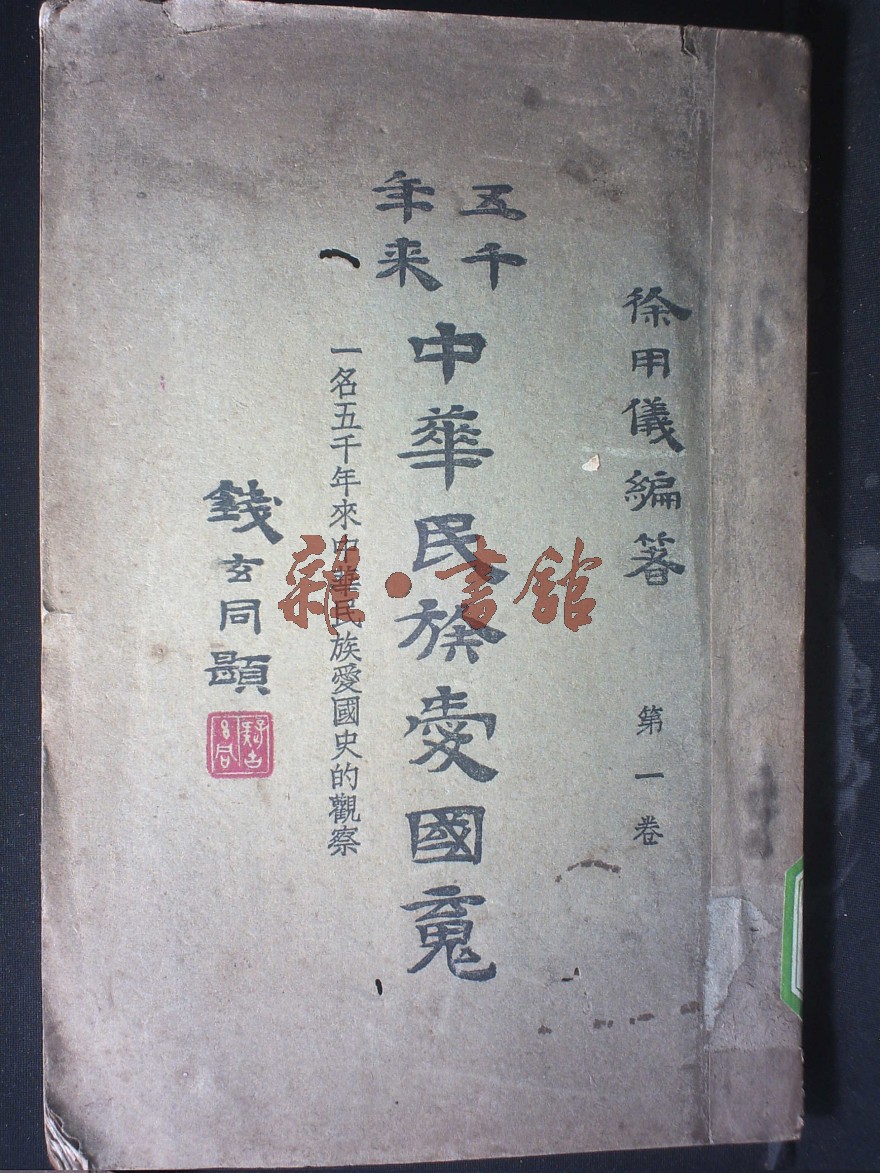 徐用儀編著
第一卷
五千
年来
中華民族愛國䰟
一名五千年來中華民族愛國史的觀察
錢玄同題
雜·書館